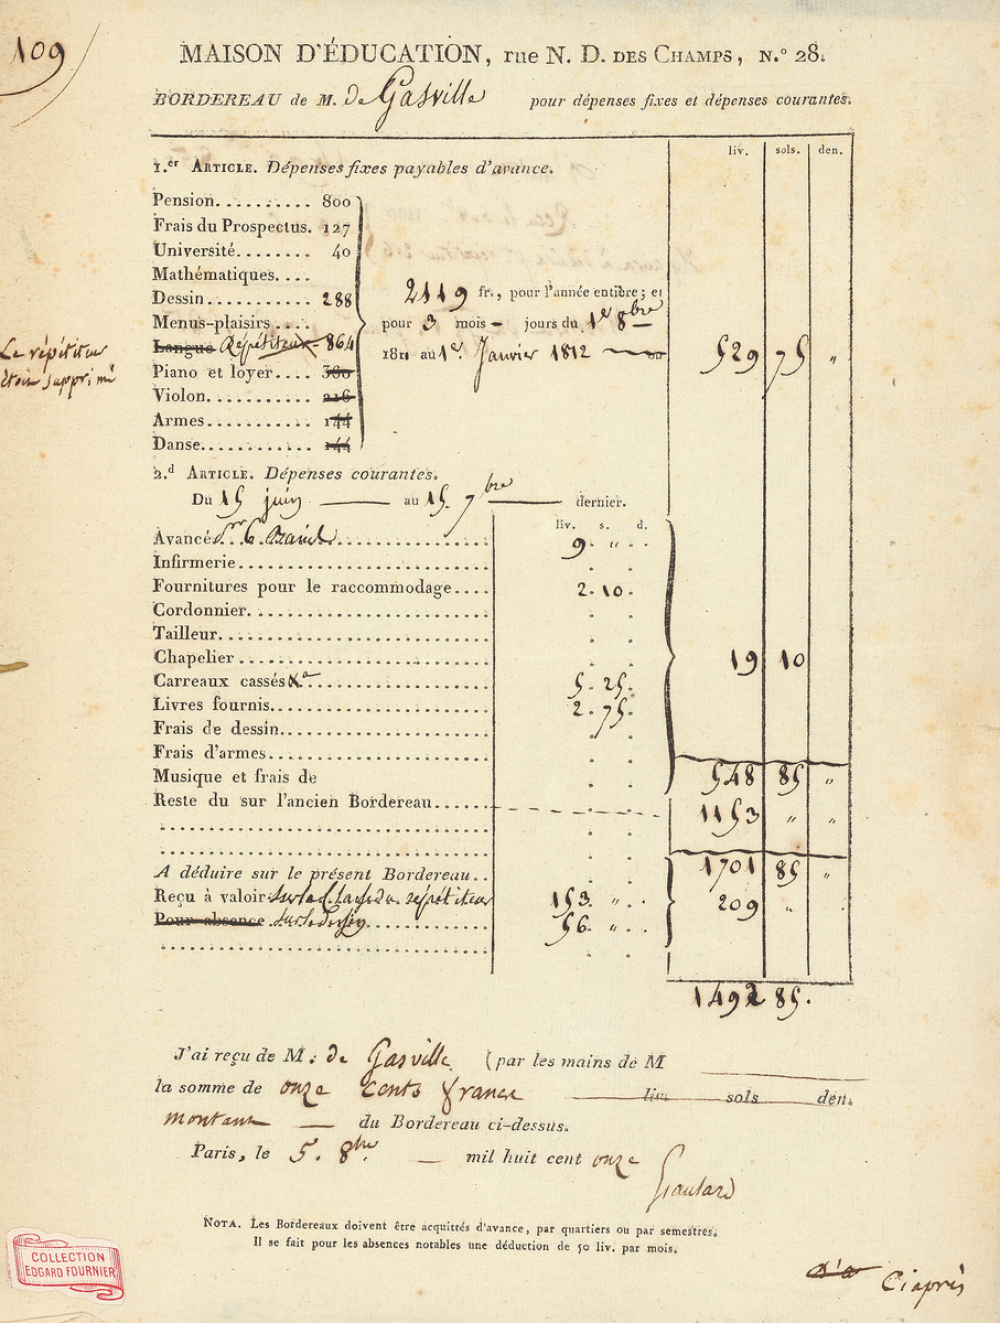 109
MAISON D'ÉDUCATION, rue N. D. DES CHAMPS, N.º 28.
BORDEREAU de M. de Gasville pour dépenses fixes et dépenses courantes.
liv. sols. den.
1.er ARTICLE. Dépenses fixes payables d'avance.
Pension.......... 800
Frais du Prospectus. 127
Université........ 40
Mathématiques....
Dessin........... 288
2119 fr., pour l'année entière; et
Menus-plaisirs....
pour 3 mois - jours du 1er 8bre
Langue Répétiteur 864
1811 au 1er Janvier 1812
529 75 "
Le répétiteur
étoit supprimé
Piano et loyer.... 360
Violon........... 216
Armes........... 144
Danse............ 144
2.d ARTICLE. Dépenses courantes.
Du 15 juin au 15. 7bre dernier.
liv. s. d.
Avancé 9. "
Infirmerie
Fournitures pour le raccommodage.... 2. 10.
Cordonnier
Tailleur
Chapelier
19 10
Carreaux cassés &a 5. 25.
Livres fournis 2. 75.
Frais de dessin
Frais d'armes
Musique et frais de
548 85 "
Reste du sur l'ancien Bordereau......
1153 " "
A déduire sur le présent Bordereau..
1701 85 "
Reçu à valoir sur la Classe du répétiteur 153. "
209 "
Pour absence sur le Dessin 56. "
1492 85.
J'ai reçu de M. de Gasville (par les mains de M
la somme de onze cents francs liv. sols den.
montant du Bordereau ci-dessus.
Paris, le 5. 8bre mil huit cent onze
Gaulard
NOTA. Les Bordereaux doivent être acquittés d'avance, par quartiers ou par semestres.
Il se fait pour les absences notables une déduction de 50 liv. par mois.
COLLECTION
EDGARD FOURNIER
Ciaprès